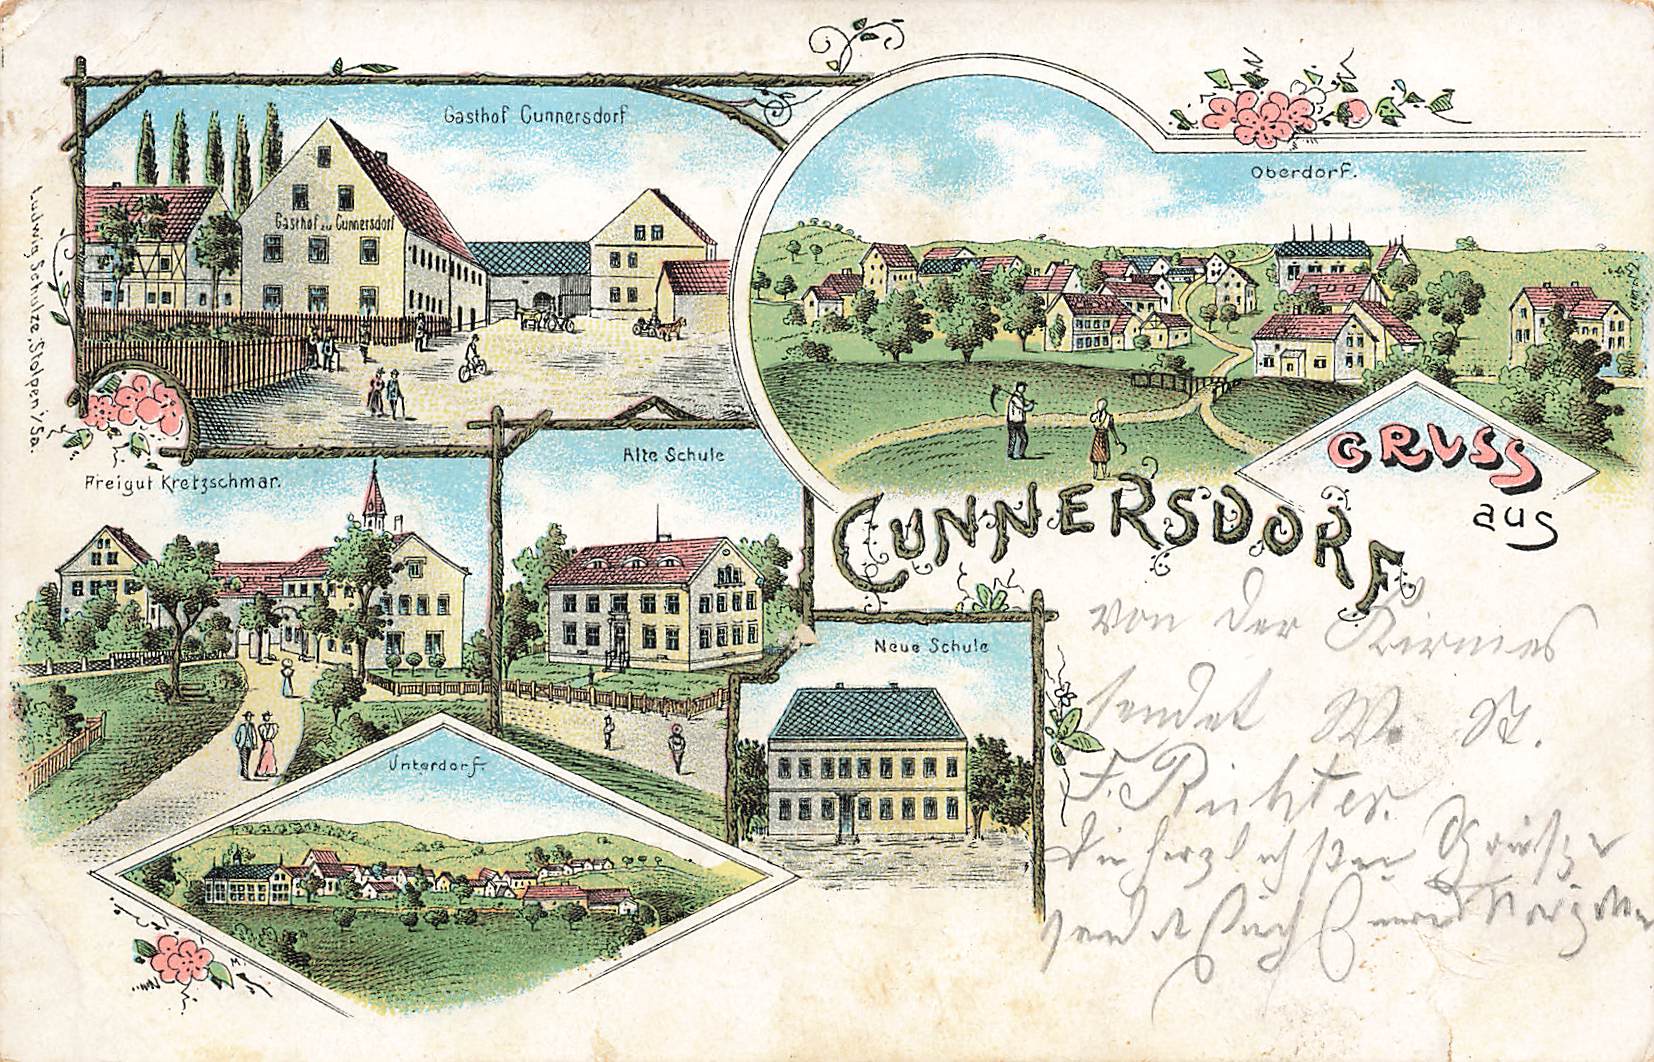 Gasthof Cunnersdorf
Gasthof zu Cunnersdorf
Oberdorf.
Ludwig Schutze, Stolpen i/Sa.
GRUSS
aus
CUNNERSDORF
Freigut Kretzschmar.
Alte Schule
Neue Schule
Unterdorf.
M.
von der Kirmes
sendet W. St.
F. Richter.
Die herzlichsten Grüße
sendet Euch